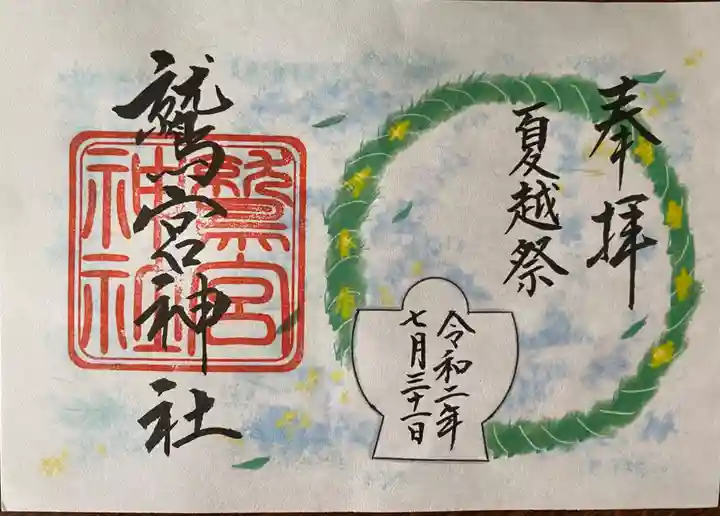 奉拝
夏越祭
令和二年
七月三十一日
鷲宮神社
鷲宮
神社